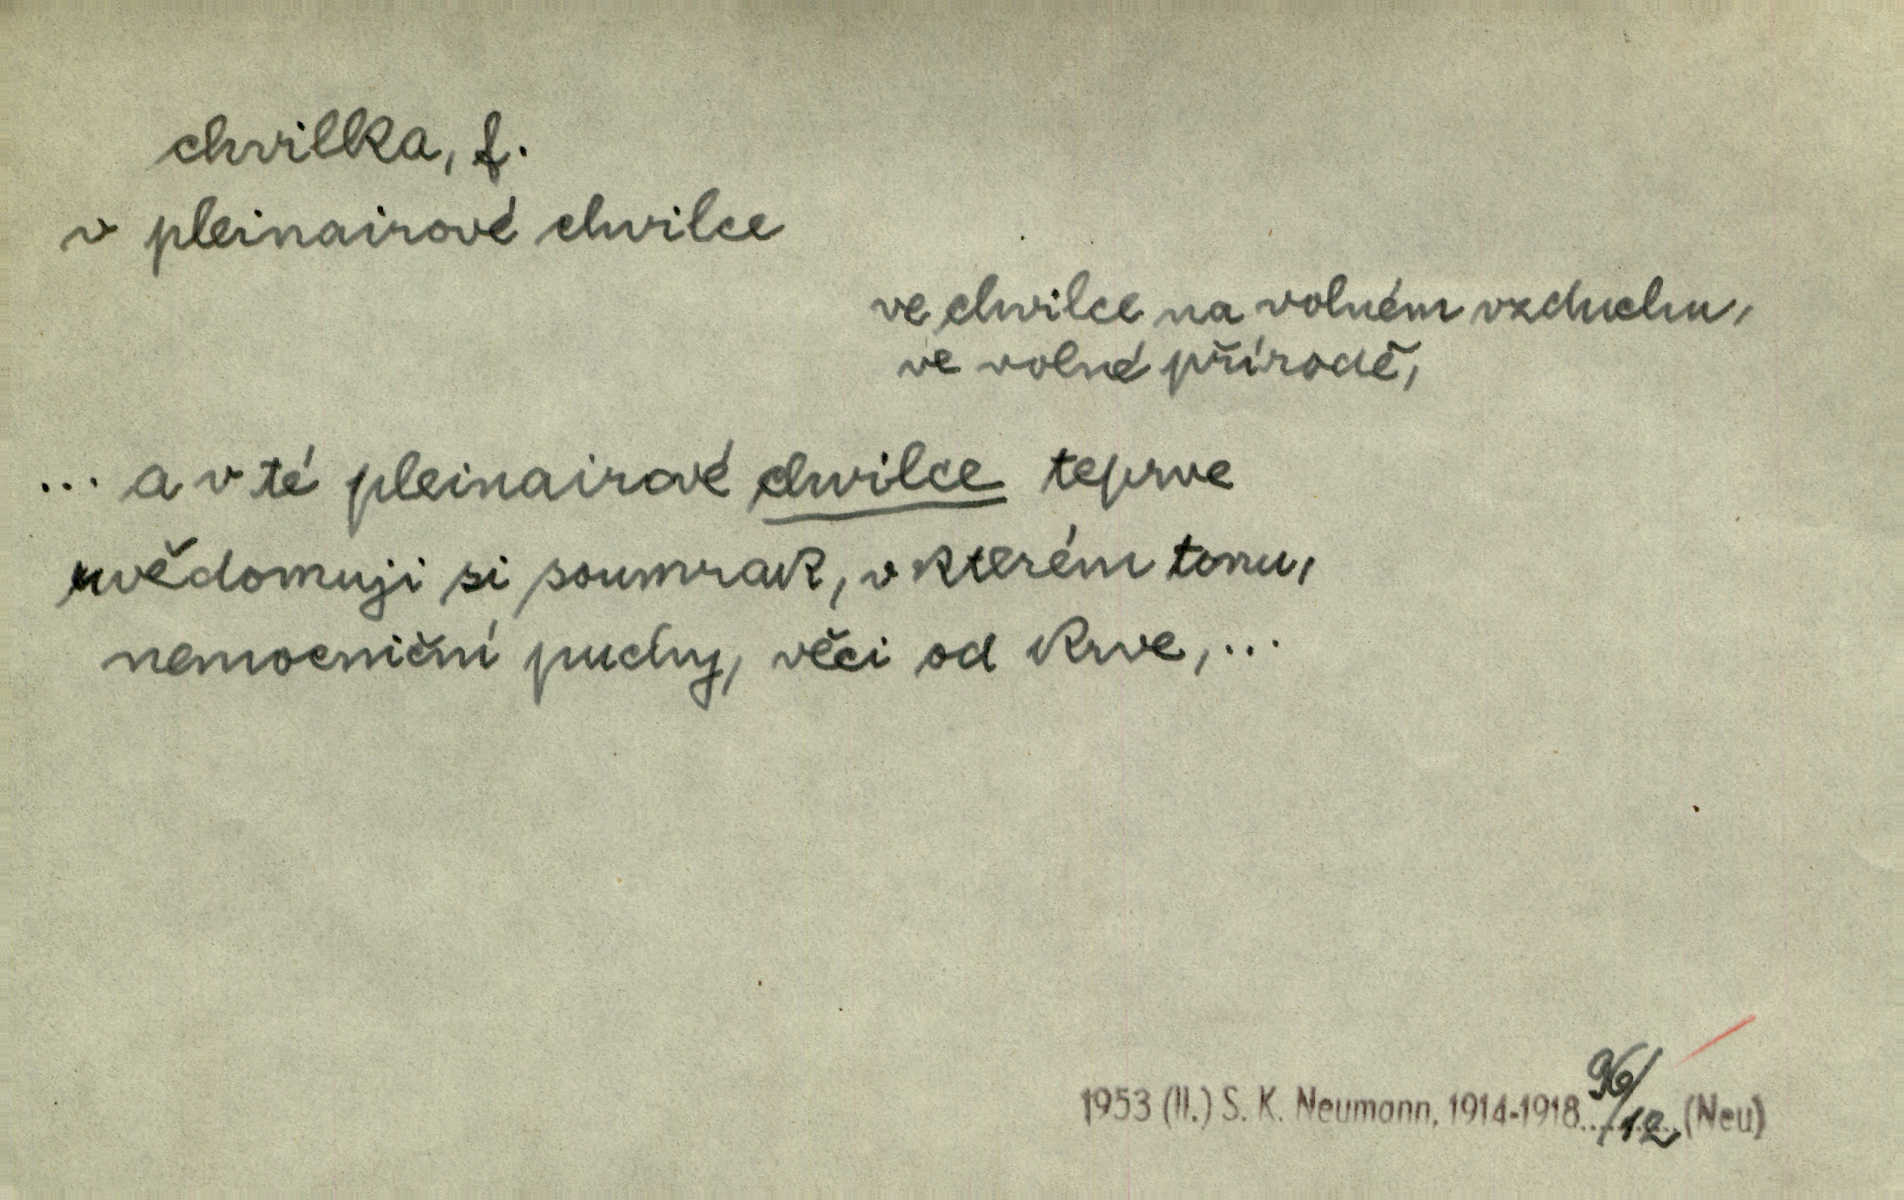 chvilka, f.
v pleinairové chvilce
ve chvilce na volném vzduchu,
ve volné přírodě,
... a v té pleinairové chvilce teprve
uvědomuji si soumrak, v kterém tonu,
nemocniční puchy, věci od krve, ...
1953 (II.) S. K. Neumann, 1914-1918 96/12 (Neu)